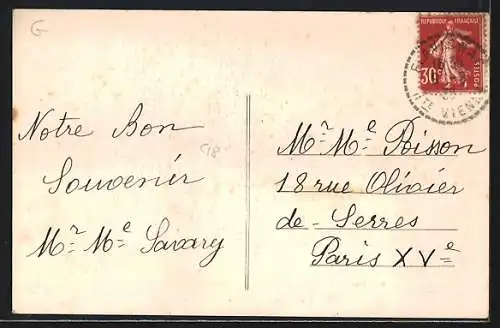 G
REPUBLIQUE FRANÇAISE
30c
POSTES
HTE VIENNE
Notre Bon
C18
Souvenir
Mr. Me Savary
Mr. Me Poisson
18 rue Olivier
de-Serres
Paris XVe